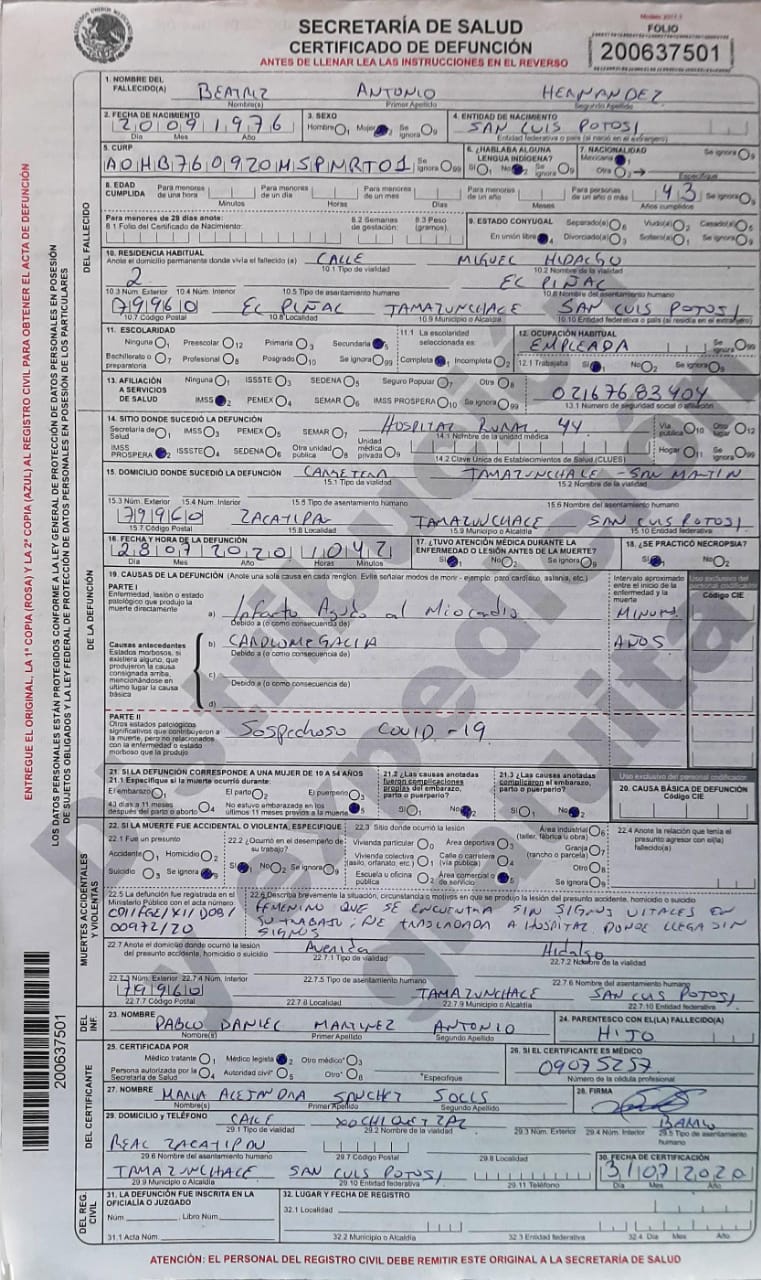 SECRETARÍA DE SALUD
CERTIFICADO DE DEFUNCIÓN
ANTES DE LLENAR LEA LAS INSTRUCCIONES EN EL REVERSO
FOLIO
200637501
1. NOMBRE DEL FALLECIDO(A) BEATRIZ ANTONIO HERNANDEZ
Nombre(s) Primer Apellido Segundo Apellido
2. FECHA DE NACIMIENTO 20091976 3. SEXO Hombre 1 Mujer Se ignora 9 4. ENTIDAD DE NACIMIENTO SAN LUIS POTOSI
Día Mes Año
5. CURP AOHB760920MSPNRT01 Se ignora 99 6. ¿HABLABA ALGUNA LENGUA INDÍGENA? Sí 1 No 2 Se ignora 9 7. NACIONALIDAD Mexicana Otra 2 Se ignora 9
Especifique
8. EDAD CUMPLIDA Para menores de una hora Minutos Para menores de un día Horas Para menores de un mes Días Para menores de un año Meses Para personas de un año o más 43 Años cumplidos Se ignora
Para menores de 28 días anote:
8.1 Folio del Certificado de Nacimiento: 8.2 Semanas de gestación: 8.3 Peso (gramos):
9. ESTADO CONYUGAL Separado(a) Viudo(a) Casado(a) En unión libre 4 Divorciado(a) 3 Soltero(a) 1 Se ignora 9
10. RESIDENCIA HABITUAL
Anote el domicilio permanente donde vivía el fallecido (a) CALLE MIGUEL HIDALGO
10.1 Tipo de vialidad 10.2 Nombre de la vialidad
2 EL PIÑAL
10.3 Núm. Exterior 10.4 Núm. Interior 10.5 Tipo de asentamiento humano 10.6 Nombre del asentamiento humano
79960 EL PIÑAL TAMAZUNCHALE SAN LUIS POTOSI
10.7 Código Postal 10.8 Localidad 10.9 Municipio o Alcaldía 10.10 Entidad federativa o país (si residía en el extranjero)
11. ESCOLARIDAD
Ninguna 1 Preescolar 12 Primaria 3 Secundaria 5
Bachillerato o preparatoria 7 Profesional 8 Posgrado 10 Se ignora 99
11.1 La escolaridad seleccionada es: Completa 1 Incompleta 2
12. OCUPACIÓN HABITUAL EMPLEADA Se ignora 99
12.1 Trabajaba Sí 1 No 2 Se ignora 9
13. AFILIACIÓN A SERVICIOS DE SALUD Ninguna 1 ISSSTE 3 SEDENA 5 Seguro Popular 7 Otra 8
IMSS 2 PEMEX 4 SEMAR 6 IMSS PROSPERA 10 Se ignora 99
02167683404
13.1 Número de seguridad social o afiliación
14. SITIO DONDE SUCEDIÓ LA DEFUNCIÓN HOSPITAL RURAL 44
Secretaría de Salud 1 IMSS 3 PEMEX 5 SEMAR 7 14.1 Nombre de la unidad médica Vía pública 10 Otro lugar 12
IMSS PROSPERA 2 ISSSTE 4 SEDENA 6 Otra unidad pública 8 Unidad médica privada 9 14.2 Clave Única de Establecimientos de Salud (CLUES) Hogar 11 Se ignora 99
15. DOMICILIO DONDE SUCEDIÓ LA DEFUNCIÓN CARRETERA TAMAZUNCHALE - SAN MARTIN
15.1 Tipo de vialidad 15.2 Nombre de la vialidad
15.3 Núm. Exterior 15.4 Núm. Interior 15.5 Tipo de asentamiento humano 15.6 Nombre del asentamiento humano
79960 ZACATIPAN TAMAZUNCHALE SAN LUIS POTOSI
15.7 Código Postal 15.8 Localidad 15.9 Municipio o Alcaldía 15.10 Entidad federativa
16. FECHA Y HORA DE LA DEFUNCIÓN 28072020 1042
Día Mes Año Horas Minutos
17. ¿TUVO ATENCIÓN MÉDICA DURANTE LA ENFERMEDAD O LESIÓN ANTES DE LA MUERTE? Sí No 2 Se ignora 9
18. ¿SE PRACTICÓ NECROPSIA? Sí No 2
19. CAUSAS DE LA DEFUNCIÓN (Anote una sola causa en cada renglón. Evite señalar modos de morir - ejemplo: paro cardiaco, astenia, etc.)
Intervalo aproximado entre el inicio de la enfermedad y la muerte
Uso exclusivo del personal codificador
Código CIE
PARTE I
Enfermedad, lesión o estado patológico que produjo la muerte directamente
a) Infarto Agudo al Miocardio MINUTOS
Debido a (o como consecuencia de)
Causas antecedentes
Estados morbosos, si existiera alguno, que produjeron la causa consignada arriba, mencionándose en último lugar la causa básica
b) CARDIOMEGALIA AÑOS
Debido a (o como consecuencia de)
c)
Debido a (o como consecuencia de)
d)
PARTE II
Otros estados patológicos significativos que contribuyeron a la muerte, pero no relacionados con la enfermedad o estado morboso que la produjo
Sospechoso COVID-19
21. SI LA DEFUNCIÓN CORRESPONDE A UNA MUJER DE 10 A 54 AÑOS
21.1 Especifique si la muerte ocurrió durante:
El embarazo 1 El parto 2 El puerperio 3
43 días a 11 meses después del parto o aborto 4 No estuvo embarazada en los últimos 11 meses previos a la muerte 5
21.2 ¿Las causas anotadas fueron complicaciones propias del embarazo, parto o puerperio? Sí 1 No 2
21.3 ¿Las causas anotadas complicaron el embarazo, parto o puerperio? Sí 1 No 2
Uso exclusivo del personal codificador
20. CAUSA BÁSICA DE DEFUNCIÓN
Código CIE
22. SI LA MUERTE FUE ACCIDENTAL O VIOLENTA, ESPECIFIQUE
22.1 Fue un presunto
Accidente 1 Homicidio 2
Suicidio 3 Se ignora 9
22.2 ¿Ocurrió en el desempeño de su trabajo? Sí No 2 Se ignora 9
22.3 Sitio donde ocurrió la lesión
Vivienda particular 0 Área deportiva 3 Área industrial (taller, fábrica u obra) 6
Vivienda colectiva (asilo, orfanato, etc.) 1 Calle o carretera (vía pública) 4 Granja (rancho o parcela) 7
Escuela u oficina pública 2 Área comercial o de servicio 5 Otro 8
Se ignora 9
22.4 Anote la relación que tenía el presunto agresor con el(la) fallecido(a)
22.5 La defunción fue registrada en el Ministerio Público con el acta número:
00972/20
22.6 Describa brevemente la situación, circunstancia o motivos en que se produjo la lesión del presunto accidente, homicidio o suicidio
FEMENINO QUE SE ENCUENTRA SIN SIGNOS VITALES EN
SU TRABAJO; FUE TRASLADADA A HOSPITAL DONDE LLEGA SIN
SIGNOS
22.7 Anote el domicilio donde ocurrió la lesión del presunto accidente, homicidio o suicidio Avenida Hidalgo
22.7.1 Tipo de vialidad 22.7.2 Nombre de la vialidad
22.7.3 Núm. Exterior 22.7.4 Núm. Interior 22.7.5 Tipo de asentamiento humano 22.7.6 Nombre del asentamiento humano
79960 TAMAZUNCHALE SAN LUIS POTOSI
22.7.7 Código Postal 22.7.8 Localidad 22.7.9 Municipio o Alcaldía 22.7.10 Entidad federativa
23. NOMBRE PABLO DANIEL MARTINEZ ANTONIO
Nombre(s) Primer Apellido Segundo Apellido
24. PARENTESCO CON EL(LA) FALLECIDO(A)
HIJO
25. CERTIFICADA POR
Médico tratante 1 Médico legista 2 Otro médico* 3
Persona autorizada por la Secretaría de Salud 4 Autoridad civil* 5 Otro* 8 *Especifique
26. SI EL CERTIFICANTE ES MÉDICO
09075257
Número de la cédula profesional
27. NOMBRE MARIA ALEJANDRA SANCHEZ SOLIS
Nombre(s) Primer Apellido Segundo Apellido
28. FIRMA
29. DOMICILIO y TELÉFONO CALLE XOCHIQUETZAL BARRIO
29.1 Tipo de vialidad 29.2 Nombre de la vialidad 29.3 Núm. Exterior 29.4 Núm. Interior 29.5 Tipo de asentamiento humano
REAL ZACATIPAN
29.6 Nombre del asentamiento humano 29.7 Código Postal 29.8 Localidad
TAMAZUNCHALE SAN LUIS POTOSI
29.9 Municipio o Alcaldía 29.10 Entidad federativa 29.11 Teléfono
30. FECHA DE CERTIFICACIÓN
31072020
Día Mes Año
31. LA DEFUNCIÓN FUE INSCRITA EN LA OFICIALÍA O JUZGADO
Núm. Libro Núm.
31.1 Acta Núm.
32. LUGAR Y FECHA DE REGISTRO
32.1 Localidad
32.2 Municipio o Alcaldía 32.3 Entidad federativa 32.4 Día Mes Año
ATENCIÓN: EL PERSONAL DEL REGISTRO CIVIL DEBE REMITIR ESTE ORIGINAL A LA SECRETARÍA DE SALUD
DEL FALLECIDO
DE LA DEFUNCIÓN
MUERTES ACCIDENTALES Y VIOLENTAS
DEL INF.
DEL CERTIFICANTE
DEL REG. CIVIL
ENTREGUE EL ORIGINAL, LA 1ª COPIA (ROSA) Y LA 2ª COPIA (AZUL) AL REGISTRO CIVIL PARA OBTENER EL ACTA DE DEFUNCIÓN
LOS DATOS PERSONALES ESTÁN PROTEGIDOS CONFORME A LA LEY GENERAL DE PROTECCIÓN DE DATOS PERSONALES EN POSESIÓN
DE SUJETOS OBLIGADOS Y LA LEY FEDERAL DE PROTECCIÓN DE DATOS PERSONALES EN POSESIÓN DE LOS PARTICULARES
200637501